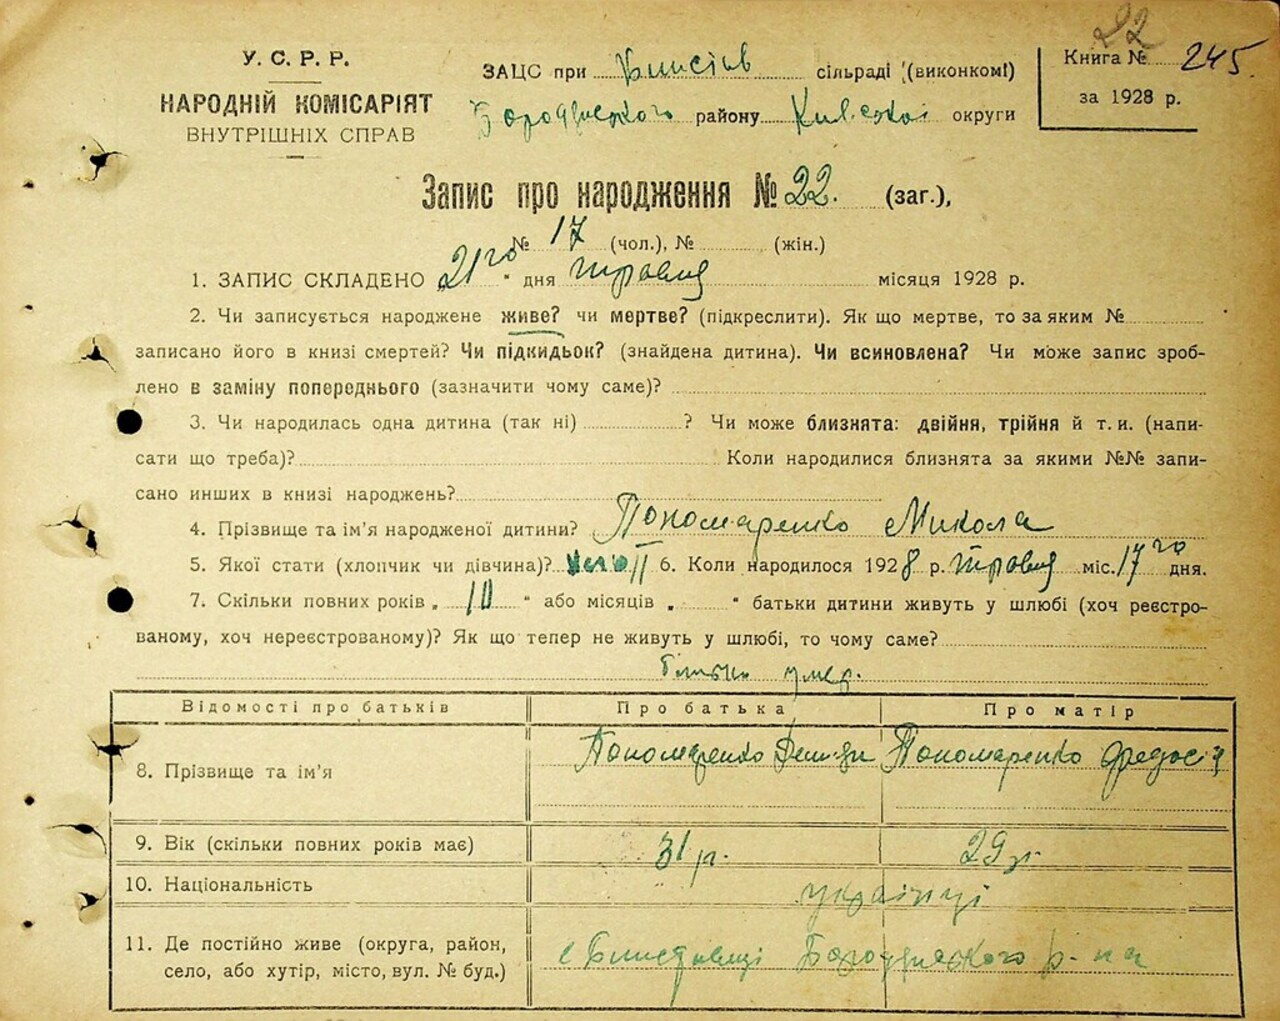 22
У. С. Р. Р.
НАРОДНІЙ КОМІСАРІЯТ
ВНУТРІШНІХ СПРАВ
ЗАЦС при сільраді (виконкомі)
Бородянського району Київської округи
Книга № 245.
за 1928 р.
Запис про народження № 22. (заг.),
№ 17 (чол.), № (жін.)
1. ЗАПИС СКЛАДЕНО „21го“ дня травня місяця 1928 р.
2. Чи записується народжене живе? чи мертве? (підкреслити). Як що мертве, то за яким №
записано його в книзі смертей? Чи підкидьок? (знайдена дитина). Чи всиновлена? Чи може запис зроб-
лено в заміну попереднього (зазначити чому саме)?
3. Чи народилась одна дитина (так ні) ? Чи може близнята: двійня, трійня й т. и. (напи-
сати що треба)? Коли народилися близнята за якими №№ запи-
сано инших в книзі народжень?
4. Прізвище та ім'я народженої дитини? Пономаренко Микола
5. Якої стати (хлопчик чи дівчина)? 6. Коли народилося 1928 р. травня міс. 17го дня.
7. Скільки повних років „ 10 “ або місяців „ “ батьки дитини живуть у шлюбі (хоч реєстро-
ваному, хоч нереєстрованому)? Як що тепер не живуть у шлюбі, то чому саме?
Відомості про батьків Про батька Про матір
8. Прізвище та ім'я Пономаренко Пономаренко Федосія
9. Вік (скільки повних років має) 31 р. 29 р.
10. Національність українці
11. Де постійно живе (округа, район,
село, або хутір, місто, вул. № буд.) с Блиставиці Бородянського р-на